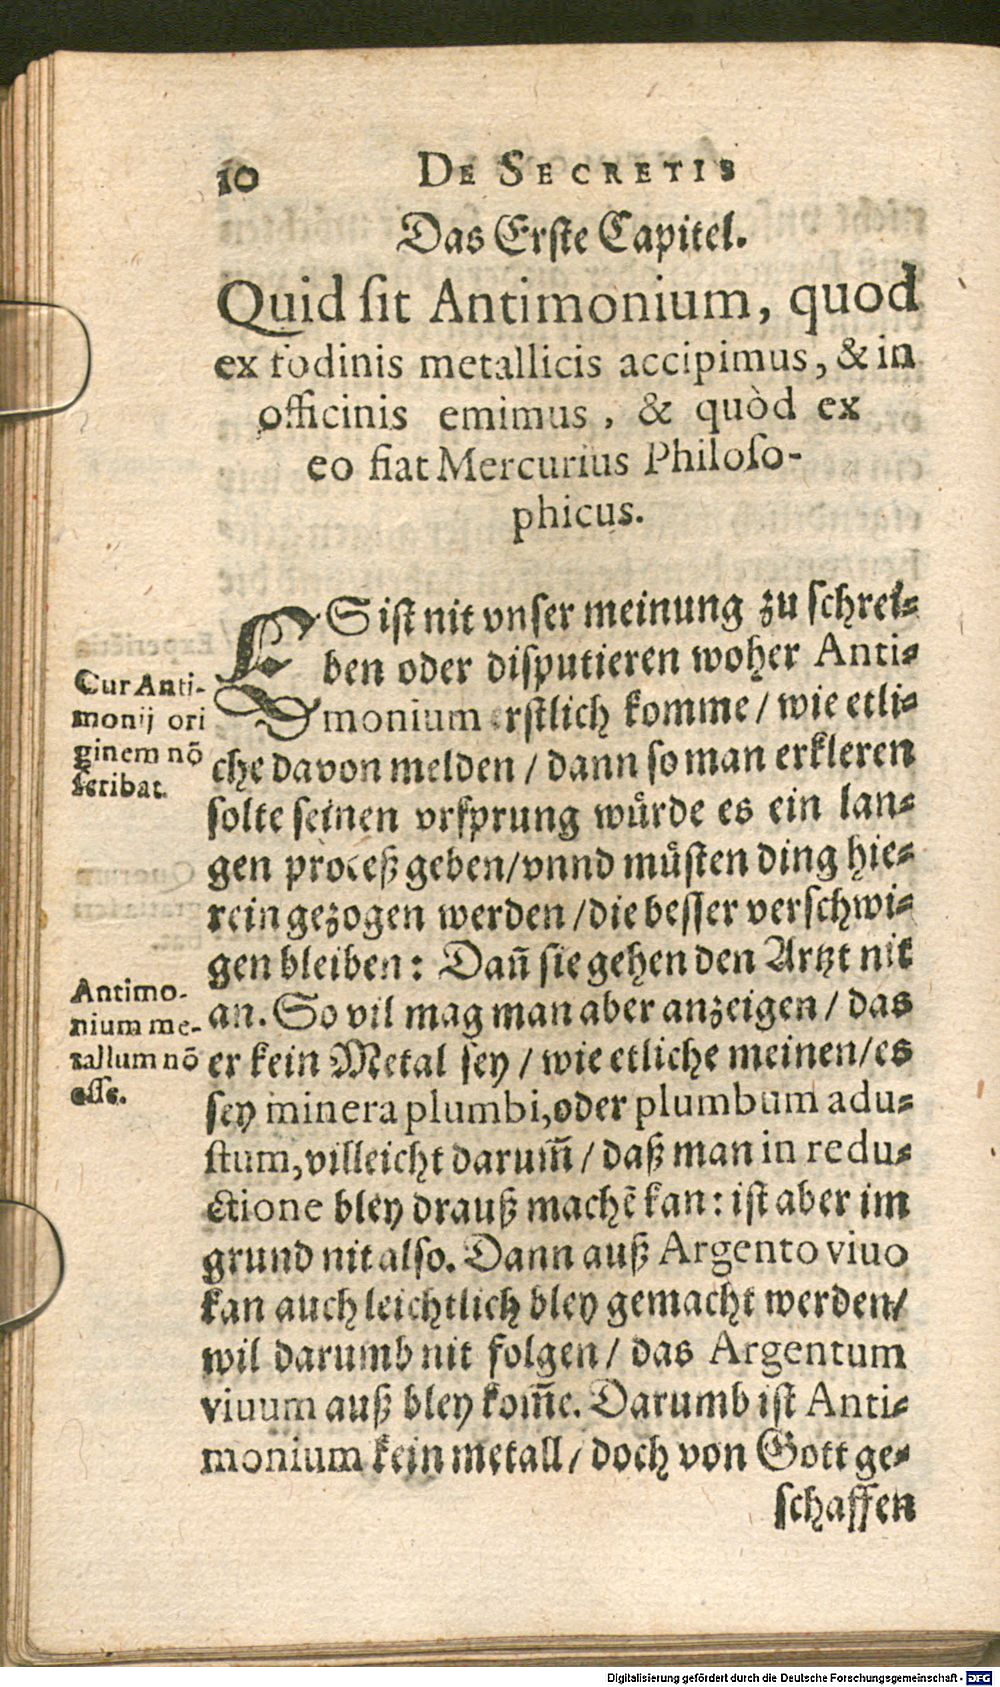 10 DE SECRETIS
Das Erste Capitel.
Quid sit Antimonium, quod
ex fodinis metallicis accipimus, & in
officinis emimus, & quòd ex
eo fiat Mercurius Philoso-
phicus.
ES ist nit vnser meinung zu schrei-
ben oder disputieren woher Anti-
monium erstlich komme / wie etli-
che davon melden / dann so man erkleren
solte seinen vrsprung wuͤrde es ein lan-
gen proceß geben / vnnd muͤsten ding hie-
rein gezogen werden / die besser verschwi-
gen bleiben: Dañ sie gehen den Artzt nit
an. So vil mag man aber anzeigen / das
er kein Metal sey / wie etliche meinen / es
sey minera plumbi, oder plumbum adu-
stum, villeicht darum̃ / daß man in redu-
ctione bley drauß machẽ kan: ist aber im
grund nit also. Dann auß Argento viuo
kan auch leichtlich bley gemacht werden /
wil darumb nit folgen / das Argentum
viuum auß bley kom̃e. Darumb ist Anti-
monium kein metall / doch von Gott ge-
schaffen
Cur Anti-
monij ori
ginem nõ
scribat.
Antimo-
nium me-
tallum nõ
esse.
Digitalisierung gefördert durch die Deutsche Forschungsgemeinschaft - DFG